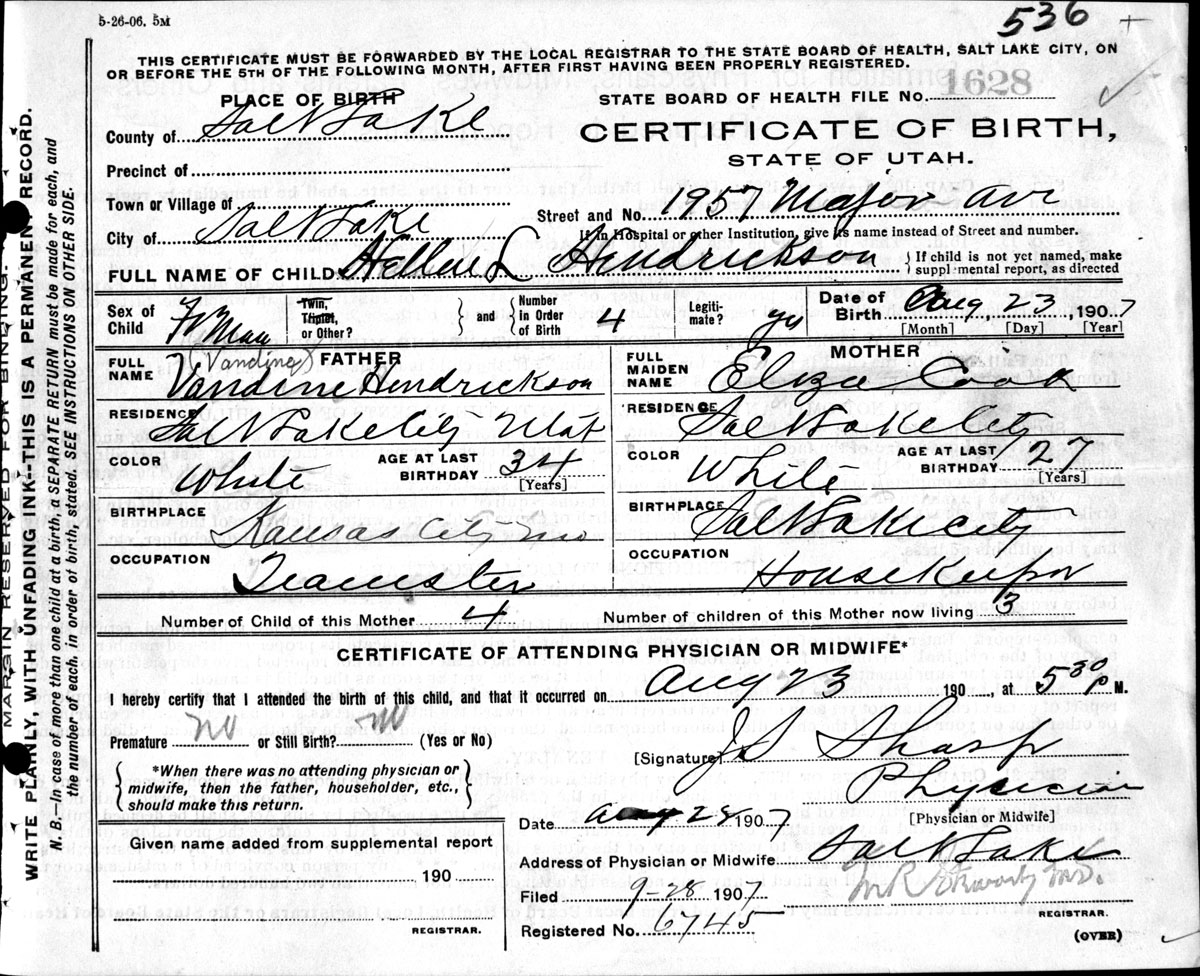 5-26-06. 5M
536 +
THIS CERTIFICATE MUST BE FORWARDED BY THE LOCAL REGISTRAR TO THE STATE BOARD OF HEALTH, SALT LAKE CITY, ON
OR BEFORE THE 5TH OF THE FOLLOWING MONTH, AFTER FIRST HAVING BEEN PROPERLY REGISTERED.
PLACE OF BIRTH
STATE BOARD OF HEALTH FILE NO. 1628
County of Salt Lake
CERTIFICATE OF BIRTH,
STATE OF UTAH.
Precinct of
Town or Village of
Street and No. 1957 Major Ave
City of Salt Lake
If in Hospital or other Institution, give its name instead of Street and number.
FULL NAME OF CHILD Hellen L Hendrickson
If child is not yet named, make supplemental report, as directed
Sex of Child
Twin, Triplet, or Other?
and
Number in Order of Birth 4
Legitimate? yes
Date of Birth Aug 23 1907
[Month] [Day] [Year]
FATHER
FULL NAME (Vandine) Vandine Hendrickson
RESIDENCE Salt Lake City Utah
COLOR White
AGE AT LAST BIRTHDAY 34 [Years]
BIRTHPLACE Kansas City Mo
OCCUPATION Teamster
MOTHER
FULL MAIDEN NAME Eliza Cook
RESIDENCE Salt Lake City
COLOR White
AGE AT LAST BIRTHDAY 27 [Years]
BIRTHPLACE Salt Lake City
OCCUPATION Housekeeper
Number of Child of this Mother 4
Number of children of this Mother now living 3
CERTIFICATE OF ATTENDING PHYSICIAN OR MIDWIFE*
I hereby certify that I attended the birth of this child, and that it occurred on Aug 23 190 , at 5 30 P M.
Premature no or Still Birth? no (Yes or No)
[Signature] J S Sharp
Physician
[Physician or Midwife]
*When there was no attending physician or midwife, then the father, householder, etc., should make this return.
Date Aug 28 1907
Address of Physician or Midwife Salt Lake
Given name added from supplemental report
190
REGISTRAR.
Filed 9-28 1907
M.D.
REGISTRAR.
Registered No. 6745
(OVER)
MARGIN RESERVED FOR BINDING.
WRITE PLAINLY, WITH UNFADING INK-THIS IS A PERMANENT RECORD.
N. B.-In case of more than one child at a birth, a SEPARATE RETURN must be made for each, and
the number of each, in order of birth, stated. SEE INSTRUCTIONS ON OTHER SIDE.